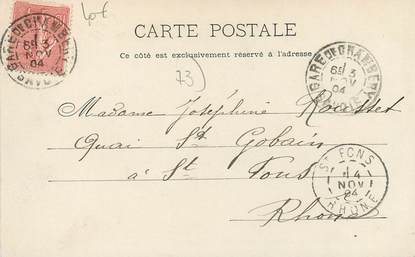 40f
CARTE POSTALE
Ce côté est exclusivement réservé à l'adresse
73)
GARE DE CHAMBERY
6E 3
NOV
04
SAVOIE
GARE DE CHAMBERY
6E 3
NOV
04
SAVOIE
Madame Joséphine Rousset
Quai St Gobain
à St Fons
Rhône
ST FONS
14
NOV
04
RHONE